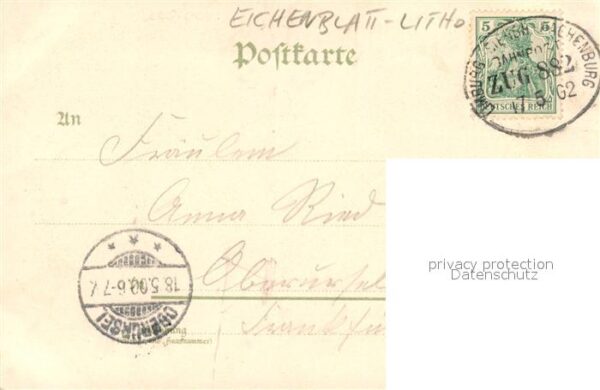 EICHENBLATT-LITHO
Postkarte
5 5
DEUTSCHES REICH
HACHENBURG
BAHNPOST
ZUG 882
17 5 02
An
Fräulein
Anna Ried
Oberursel
Frankfu
18.5.02.6-7V.
OBERURSEL
privacy protection
Datenschutz